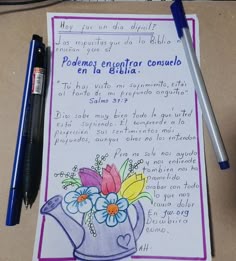 Hoy fue un día difícil?
Las respuestas que da la Biblia
enseñan que sí
Podemos encontrar consuelo
en la Biblia.
"Tú has visto mi sufrimiento, estás
al tanto de mi profunda angustia"
Salmo 31:7
Dios sabe muy bien lo que usted
está sufriendo. Él comprende a la
perfección sus sentimientos más
profundos, aunque otros no los entiendan
Pero no solo nos ayuda
y nos entiende
también nos ha
prometido
acabar con todo
lo que nos
causa dolor
En jw.org
Descubrirá
cómo.
AH